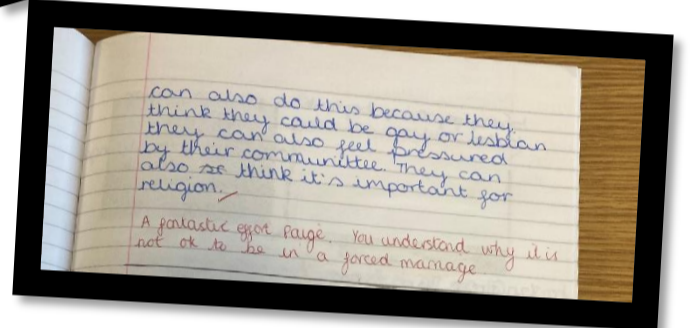 can also do this because they
think they could be gay or lesbian
they can also feel pressured
by their communittee. They can
also think it's important for
religion.
A fantastic effort Paige. You understand why it is
not ok to be in a forced marriage